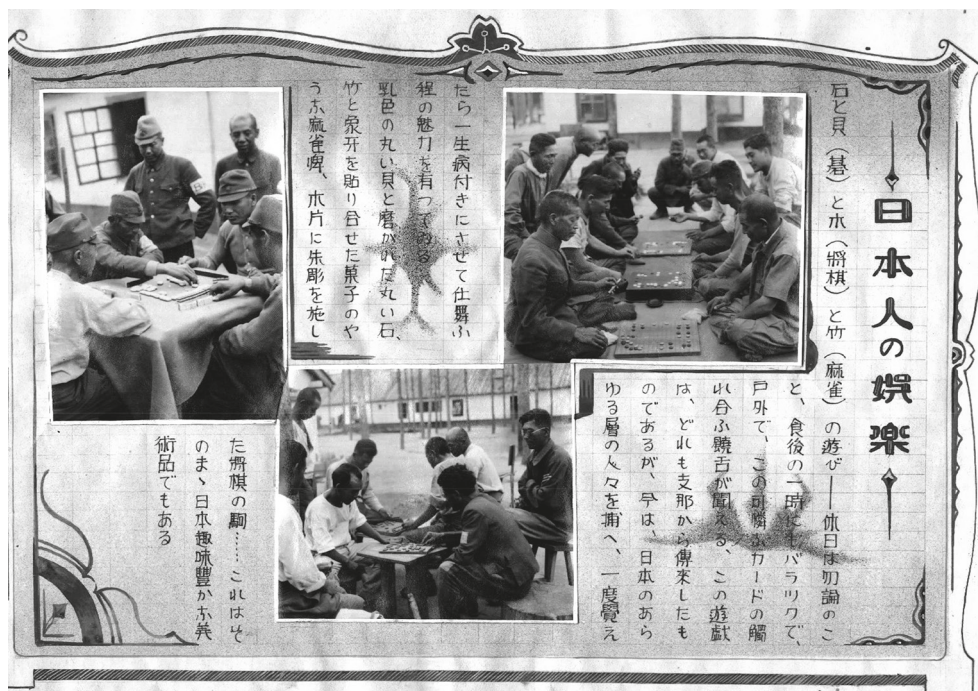 日本人の娯楽
石と貝（碁）と木（將棋）と竹（麻雀）の遊び――休日は勿論のこ
と、食後の一時にもバラックで、
戸外で、この可憐なカードの觸
れ合ふ饒舌が聞える、この遊戯
は、どれも支那から傳來したも
のであるが、今は、日本のあら
ゆる層の人々を捕へ、一度覺え
たら一生病付きにさせて仕舞ふ
程の魅力を有つてゐる
乳色の丸い貝と磨かれた丸い石、
竹と象牙を貼り合せた菓子のや
うな麻雀牌、木片に朱彫を施し
た將棋の駒……これはそ
のまゝ日本趣味豐かな美
術品でもある